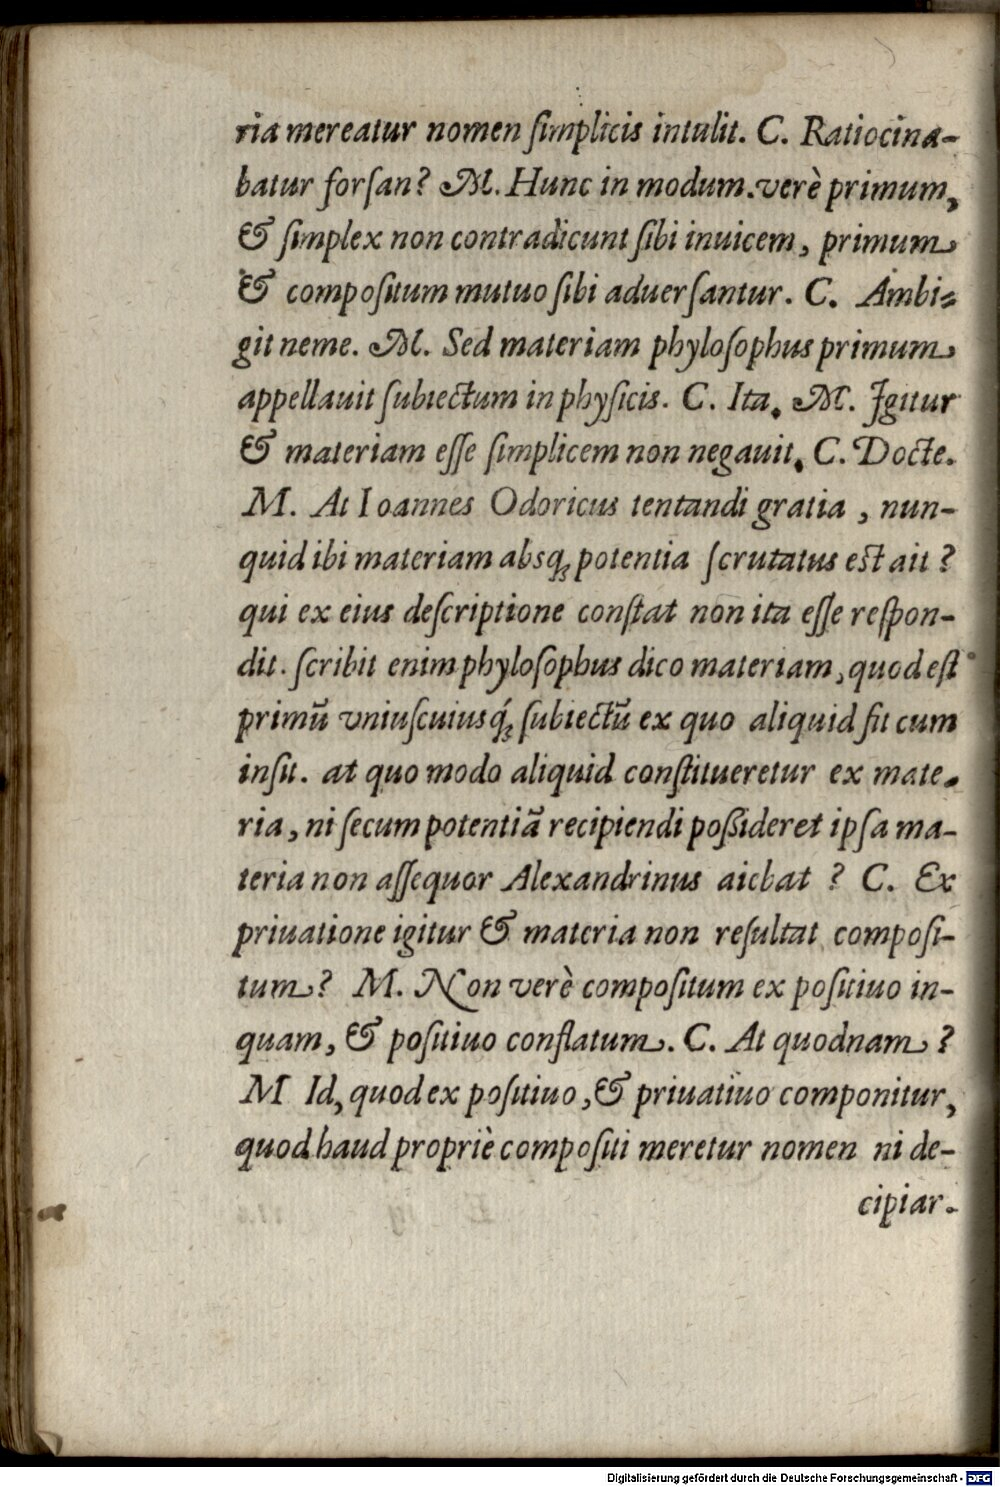 ria mereatur nomen ſimplicis intulit. C. Ratiocina-
batur forſan? M. Hunc in modum. verè primum,
& ſimplex non contradicunt ſibi inuicem, primum
& compoſitum mutuo ſibi aduerſantur. C. Ambi-
git neme. M. Sed materiam phyloſophus primum
appellauit ſubiectum in phyſicis. C. Ita. M. Igitur
& materiam eſſe ſimplicem non negauit. C. Docte.
M. At Ioannes Odoricus tentandi gratia, nun-
quid ibi materiam absq; potentia ſcrutatus est ait?
qui ex eius deſcriptione conſtat non ita eſſe reſpon-
dit. ſcribit enim phyloſophus dico materiam, quod eſt
primũ vniuſcuiusq́; ſubiectũ ex quo aliquid fit cum
inſit. at quo modo aliquid conſtitueretur ex mate-
ria, ni ſecum potentiã recipiendi poßideret ipſa ma-
teria non aſſequor Alexandrinus aiebat? C. Ex
priuatione igitur & materia non reſultat compoſi-
tum? M. Non verè compoſitum ex poſitiuo in-
quam, & poſitiuo conflatum. C. At quodnam?
M Id, quod ex poſitiuo, & priuatiuo componitur,
quod haud propriè compoſiti meretur nomen ni de-
cipiar.
Digitalisierung gefördert durch die Deutsche Forschungsgemeinschaft - DFG